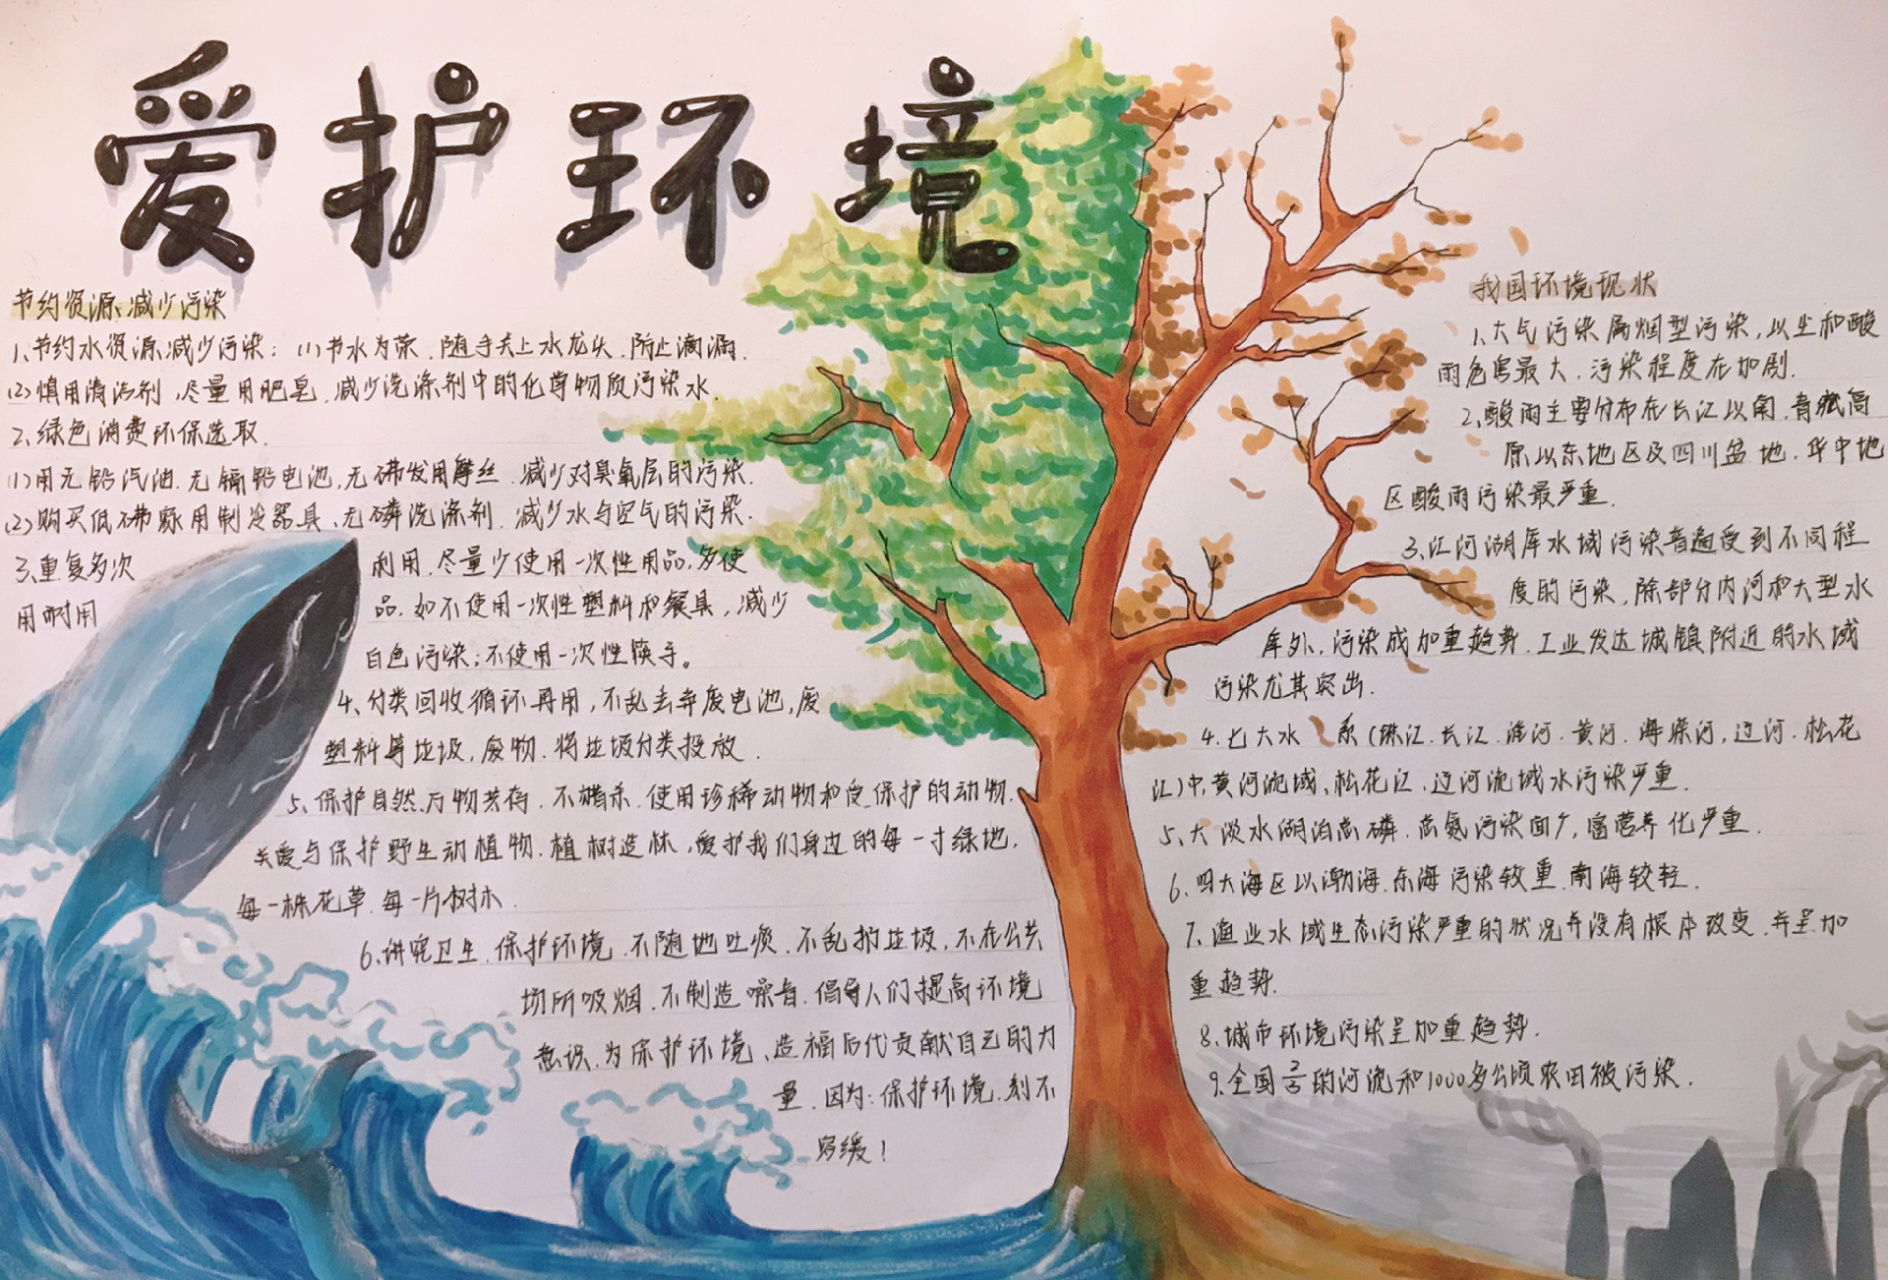 爱护环境
节约资源、减少污染
1、节约水资源、减少污染：(1)节水为荣、随手关上水龙头、防止滴漏.
(2)慎用清洁剂、尽量用肥皂、减少洗涤剂中的化学物质污染水.
2、绿色消费环保选取.
(1)用无铅汽油、无镉铅电池,无磷发用摩丝、减少对臭氧层的污染.
(2)购买低磷家用制冷器具、无磷洗涤剂、减少水与空气的污染.
3、重复多次利用、尽量少使用一次性用品、多使
用耐用品、如不使用一次性塑料和餐具,减少
白色污染;不使用一次性筷子。
4、分类回收循环再用,不乱丢弃废电池,废
塑料等垃圾,废物、将垃圾分类投放.
5、保护自然、万物共存、不捕杀、使用珍稀动物和受保护的动物.
关爱与保护野生动植物、植树造林,爱护我们身边的每一寸绿地,
每一株花草、每一片树木.
6、讲究卫生、保护环境、不随地吐痰、不乱扔垃圾,不在公共
场所吸烟、不制造噪音、倡导人们提高环境
意识、为保护环境、造福后代贡献自己的力
量、因为:保护环境、刻不
容缓！
我国环境现状
1、大气污染属烟型污染,以尘和酸
雨危害最大、污染程度在加剧.
2、酸雨主要分布在长江以南、青藏高
原以东地区及四川盆地、华中地
区酸雨污染最严重.
3、江河湖库水域污染普遍受到不同程
度的污染,除部分内河和大型水
库外、污染成加重趋势、工业发达城镇附近的水域
污染尤其突出.
4.七大水系(珠江、长江、淮河、黄河、海滦河,辽河、松花
江)中,黄河流域、松花江、辽河流域水污染严重.
5、大淡水湖泊高磷、高氮污染面广,富营养化严重.
6、四大海区以渤海、东海污染较重、南海较轻.
7、渔业水域生态污染严重的状况并没有根本改变、并呈加
重趋势.
8、城市环境污染呈加重趋势.
9、全国2/3的河流和1000多公顷农田被污染.